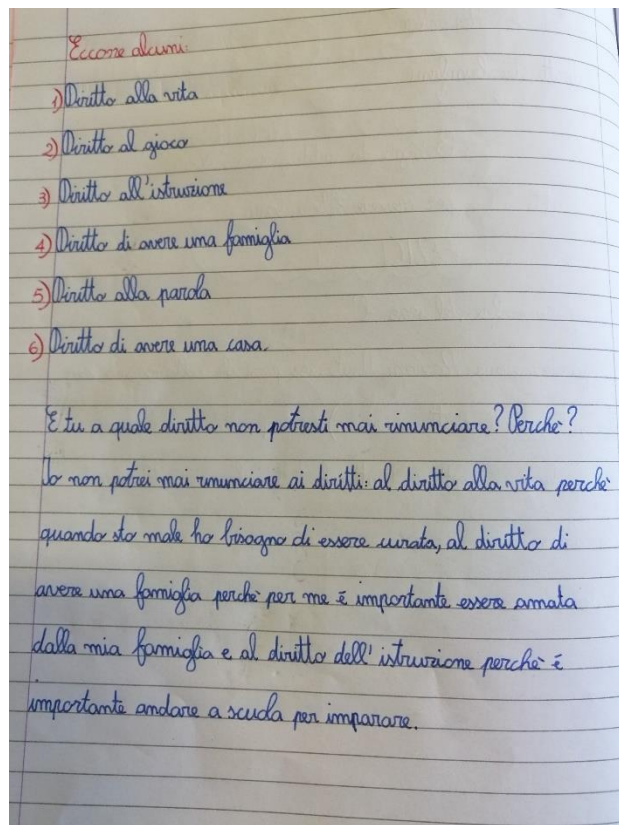 Eccone alcuni:
1) Diritto alla vita
2) Diritto al gioco
3) Diritto all'istruzione
4) Diritto di avere una famiglia
5) Diritto alla parola
6) Diritto di avere una casa.
E tu a quale diritto non potresti mai rinunciare? Perchè?
Io non potrei mai rinunciare ai diritti: al diritto alla vita perchè
quando sto male ho bisogno di essere curata, al diritto di
avere una famiglia perchè per me è importante essere amata
dalla mia famiglia e al diritto dell'istruzione perchè è
importante andare a scuola per imparare.